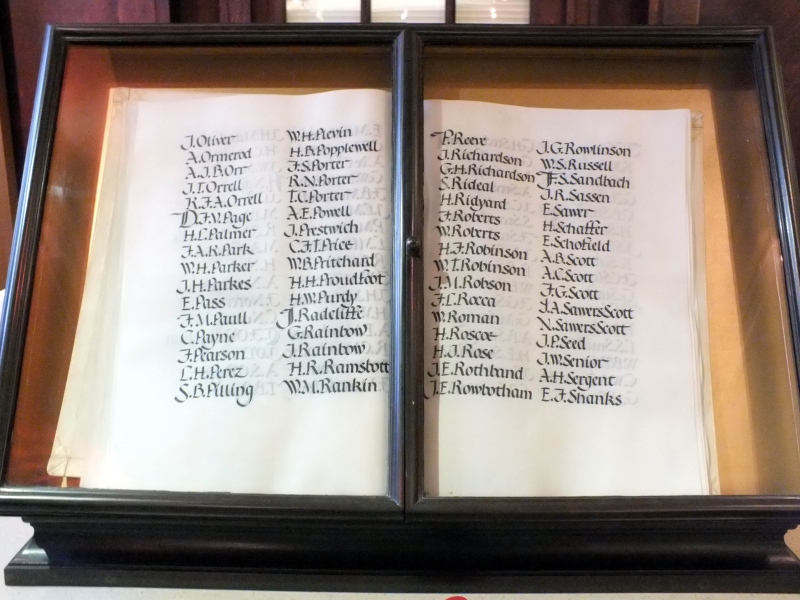 J.Oliver
A.Ormerod
A.J.B.Orr
J.T.Orrell
R.F.A.Orrell
D.F.V.Page
H.L.Palmer
F.A.R.Park
W.H.Parker
J.H.Parkes
E.Pass
F.M.Paull
C.Payne
F.Pearson
L.H.Perez
S.B.Pilling
W.H.Plevin
H.B.Popplewell
F.S.Porter
R.N.Porter
T.C.Porter
A.E.Powell
J.Prestwich
C.F.T.Price
W.B.Pritchard
H.H.Proudfoot
H.W.Purdy
J.Radcliffe
G.Rainbow
J.Rainbow
H.R.Ramsbott
W.M.Rankin
P.Reeve
J.Richardson
G.H.Richardson
S.Rideal
H.Ridyard
F.Roberts
W.Roberts
H.F.Robinson
W.T.Robinson
J.M.Robson
F.L.Rocca
W.Roman
H.Roscoe
H.J.Rose
J.E.Rothband
J.E.Rowbotham
J.G.Rowlinson
W.S.Russell
F.S.Sandbach
J.R.Sassen
E.Sawer
H.Schaffer
E.Schofield
A.B.Scott
A.C.Scott
F.G.Scott
J.A.SawersScott
N.SawersScott
J.P.Seed
J.W.Senior
A.H.Sergent
E.F.Shanks